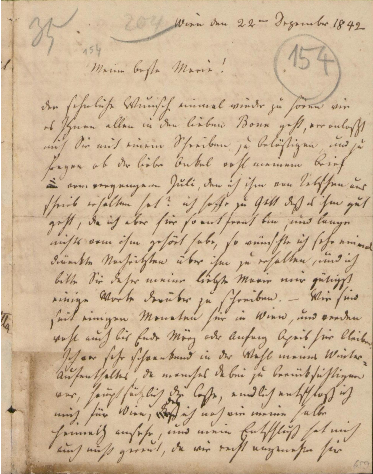 35 204 Wien den 22ten Dezember 1842
154 154
Meine beste Marie!
der sehnliche Wunsch einmal wieder zu hören wie
es Ihnen allen in dem lieben Bonn geht, veranlaßt
mich Sie mit einem Schreiben zu belästigen und zu
fragen ob der liebe Onkel wohl meinen Brief
vom vergangenen Juli, den ich ihm von aus
schrieb erhalten hat? ich hoffe zu Gott daß es ihm gut
geht, da ich aber hier so entfernt bin, und lange
nichts von ihm gehört habe, so wünschte ich sehr einmal
direkte Nachrichten über ihn zu erhalten, und ich
bitte Sie daher meine liebste Marie mir gütigst
einige Worte darüber zu schreiben. – Wir sind
seit einigen Monaten hier in Wien, und werden
wohl auch bis Ende März oder Anfang April hier bleiben
Ich war sehr schwankend in der Wahl meines Winter-
Aufenthaltes da manches dabei zu berücksichtigen
war, hauptsächlich das beste, endlich entschloß ich
mich für Wien, ich noch wie meine halbe
Heimath ansehe, und mein Entschluß hat mich
auch nicht gereut, da wir recht angenehm hier